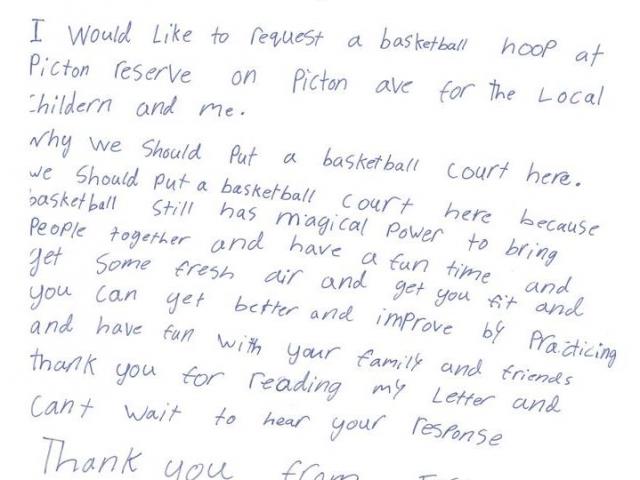 I would Like to request a basketball hoop at
Picton reserve on Picton ave for the Local
childern and me.
why we should put a basketball court here.
we should put a basketball court here because
basketball still has magical power to bring
people together and have a fun time and
get some fresh air and get you fit and
you can get better and improve by practicing
and have fun with your family and friends
thank you for reading my Letter and
cant wait to hear your response
Thank you from